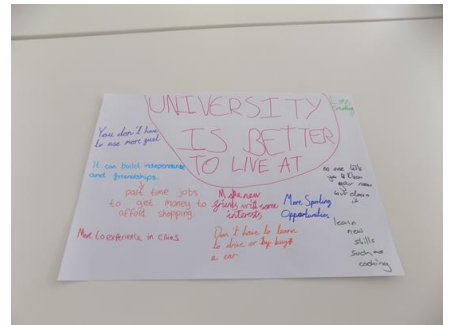 UNIVERSITY
IS BETTER
TO LIVE AT
You don't have
to use more fuel
It can build independence
and friendships.
part time jobs
to get money to
afford shopping
Make new
friends with same
interests
More Sporting
Opportunities
no one tells
you to clean
your room
learn
new
skills
such as
cooking
Don't have to learn
to drive or buy
a car
More to experience in